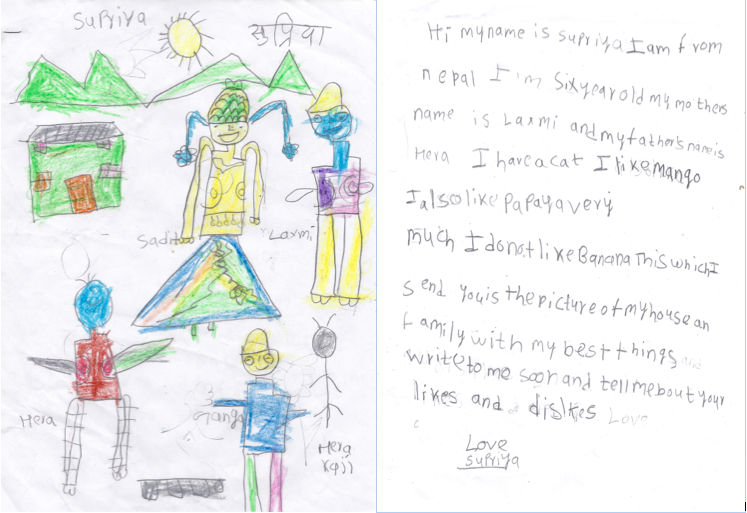 Supriya
सुप्रिया
Laxmi
Hera
Ganga
Hera
Hi my name is supriya I am from
nepal I'm Six year old my mothers
name is Laxmi and my father's name is
Hera I have a cat I like Mango
I also like papaya very
much I do not like Banana This which I
send you is the picture of my house an
family with my best things and
write to me soon and tell me bout your
likes and dislkes Love
Love
supriya